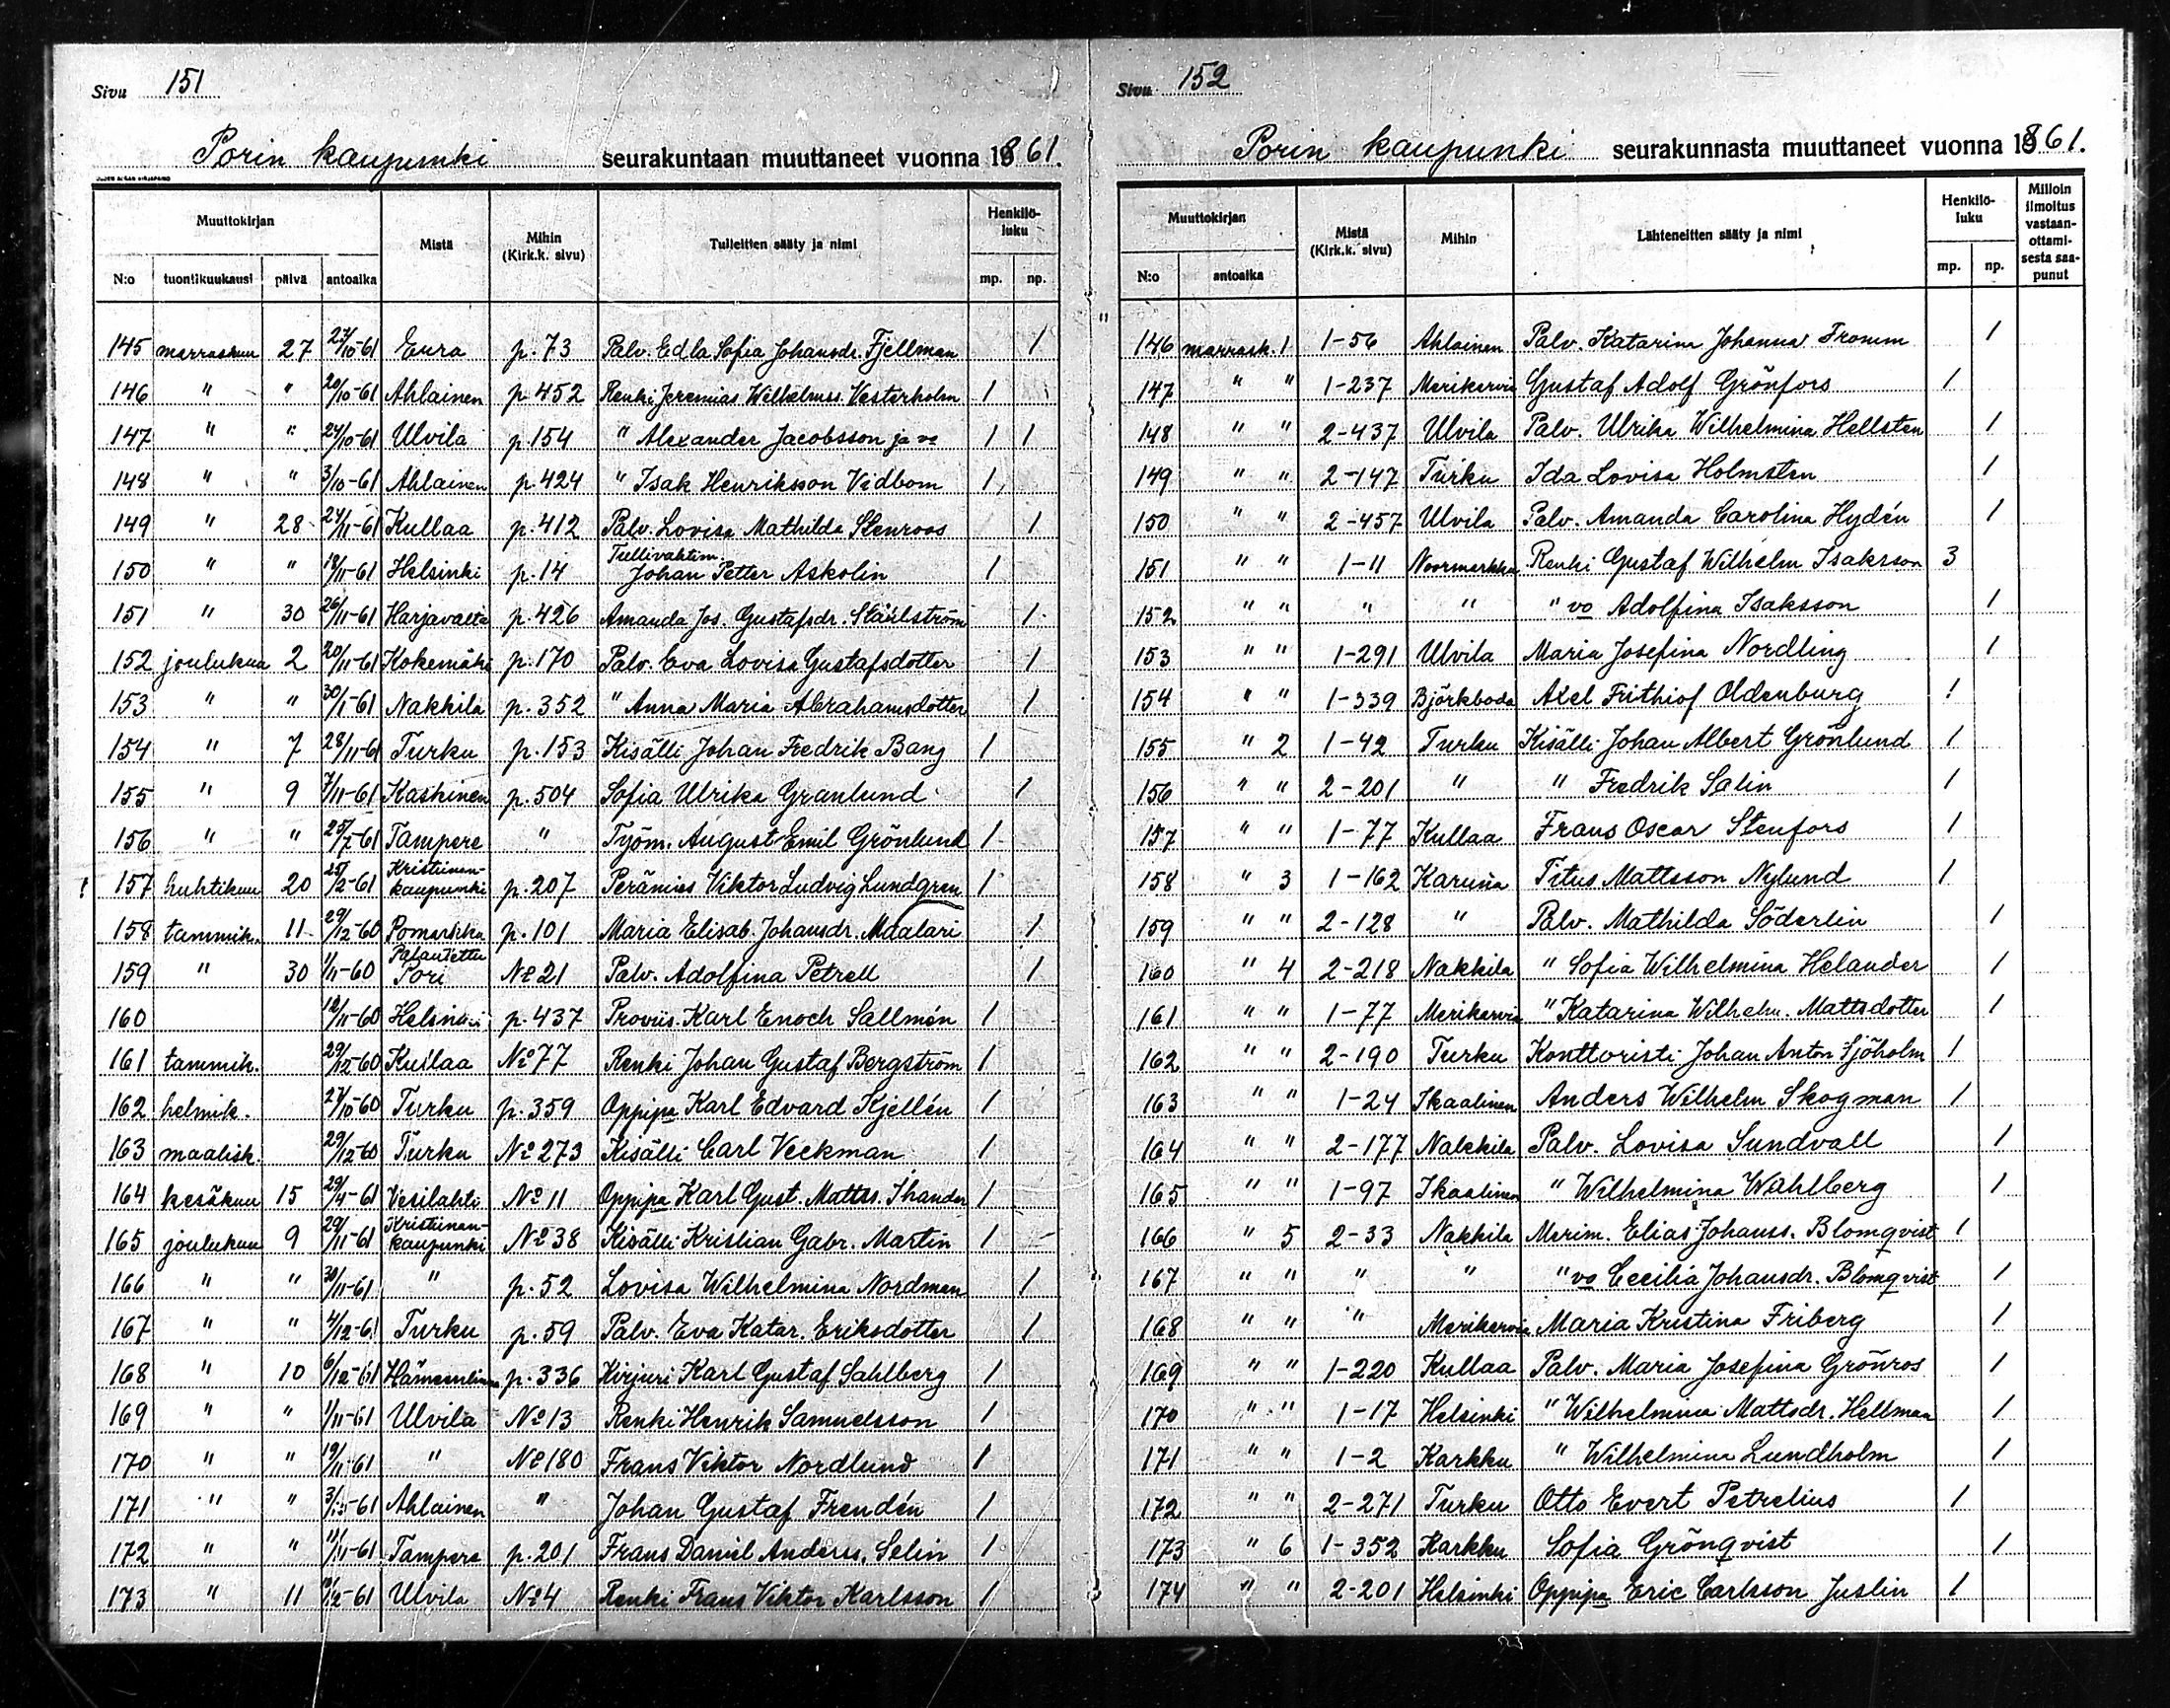 Sivu 151
Porin kaupunki seurakuntaan muuttaneet vuonna 1861.
Muuttokirjan Mistä Mihin (Kirk.k. sivu) Tulleitten sääty ja nimi Henkilö-luku
N:o tuontikuukausi päivä antoaika mp. np.
145 marraskuu 27 27/10-61 Eura p.73 Palv. Edla Sofia Johansdr. Fjellman 1
146 " " 20/10-61 Ahlainen p.452 Renki Jeremias Wilhelmss. Vesterholm 1
147 " " 24/10-61 Ulvila p.154 " Alexander Jacobsson ja vo 1 1
148 " " 3/10-61 Ahlainen p.424 " Isak Henriksson Vidbom 1
149 " 28 24/11-61 Kullaa p.412 Palv. Lovisa Mathilda Stenroos 1
150 " " 18/11-61 Helsinki p.14 Tullivahtim. Johan Petter Askolin 1
151 " 30 26/11-61 Harjavalta p.426 Amanda Jos. Gustafsdr. Stählström 1
152 joulukuu 2 20/11-61 Kokemäki p.170 Palv. Eva Lovisa Gustafsdotter 1
153 " " 30/1-61 Nakkila p.352 " Anna Maria Abrahamsdotter 1
154 " 7 28/11-61 Turku p.153 Kisälli Johan Fredrik Bang 1
155 " 9 7/11-61 Kaskinen p.504 Sofia Ulrika Granlund 1
156 " " 25/7-61 Tampere " Työm. August Emil Grönlund 1
157 huhtikuu 20 25/2-61 Kristiinan-kaupunki p.207 Perämies Viktor Ludvig Lundgren 1
158 tammik. 11 29/12-60 Pomarkku p.101 Maria Elisab. Johansdr. Maalari 1
159 " 30 1/11-60 Palautettu Pori No 21 Palv. Adolfina Petrell 1
160 12/11-60 Helsinki p.437 Proviis. Karl Enoch Sallmén 1
161 tammik. 29/12-60 Kullaa No 77 Renki Johan Gustaf Bergström 1
162 helmik. 27/10-60 Turku p.359 Oppipa Karl Edvard Kjellén 1
163 maalisk. 29/12-60 Turku No 273 Kisälli Carl Veckman 1
164 kesäkuu 15 29/4-61 Vesilahti No 11 Oppipa Karl Gust. Mattss. Ihander 1
165 joulukuu 9 29/11-61 Kristiinan-kaupunki No 38 Kisälli Kristian Gabr. Martin 1
166 " " 30/11-61 " p.52 Lovisa Wilhelmina Nordman 1
167 " " 4/12-61 Turku p.59 Palv. Eva Katar. Eriksdotter 1
168 " 10 6/12-61 Hämeenlinna p.336 Kirjuri Karl Gustaf Sahlberg 1
169 " " 1/11-61 Ulvila No 13 Renki Henrik Samuelsson 1
170 " " 19/11-61 " No 180 Frans Viktor Nordlund 1
171 " " Ahlainen " Johan Gustaf Frendén 1
172 " " 11/11-61 Tampere p.201 Frans Daniel Anderss. Selin 1
173 " 11 Ulvila No 4 Renki Frans Viktor Karlsson 1
Sivu 152
Porin kaupunki seurakunnasta muuttaneet vuonna 1861.
Muuttokirjan Mistä (Kirk.k. sivu) Mihin Lähteneitten sääty ja nimi Henkilö-luku Milloin ilmoitus vastaan-ottami-sesta saa-punut
N:o antoaika mp. np.
146 marrask. 1 1-56 Ahlainen Palv. Katarina Johanna Fromm 1
147 " " 1-237 Merikarvia Gustaf Adolf Grönfors 1
148 " " 2-437 Ulvila Palv. Ulrika Wilhelmina Hellsten 1
149 " " 2-147 Turku Ida Lovisa Holmsten 1
150 " " 2-457 Ulvila Palv. Amanda Carolina Hydén 1
151 " " 1-11 Noormarkku Renki Gustaf Wilhelm Isaksson 3
152 " " " " " vo Adolfina Isaksson 1
153 " " 1-291 Ulvila Maria Josefina Nordling 1
154 " " 1-339 Björkboda Axel Frithiof Oldenburg 1
155 " 2 1-42 Turku Kisälli Johan Albert Grönlund 1
156 " " 2-201 " " Fredrik Salin 1
157 " " 1-77 Kullaa Frans Oscar Stenfors 1
158 " 3 1-162 Karuna Titus Mattsson Nylund 1
159 " " 2-128 " Palv. Mathilda Söderlin 1
160 " 4 2-218 Nakkila " Sofia Wilhelmina Helander 1
161 " " 1-77 Merikarvia " Katarina Wilhelm. Mattsdotter 1
162 " " 2-190 Turku Konttoristi Johan Anton Sjöholm 1
163 " " 1-24 Ikaalinen Anders Wilhelm Skogman 1
164 " " 2-177 Nakkila Palv. Lovisa Sundvall 1
165 " " 1-97 Ikaalinen " Wilhelmina Wahlberg 1
166 " 5 2-33 Nakkila Merim. Elias Johanss. Blomqvist 1
167 " " " " " vo Cecilia Johansdr. Blomqvist 1
168 " " " Merikarvia Maria Kristina Friberg 1
169 " " 1-220 Kullaa Palv. Maria Josefina Grönros 1
170 " " 1-17 Helsinki " Wilhelmina Mattsdr. Hellman 1
171 " " 1-2 Karkku " Wilhelmina Lundholm 1
172 " " 2-271 Turku Otto Evert Petrelius 1
173 " 6 1-352 Karkku Sofia Grönqvist 1
174 " " 2-201 Helsinki Oppipa Eric Carlsson Juslin 1